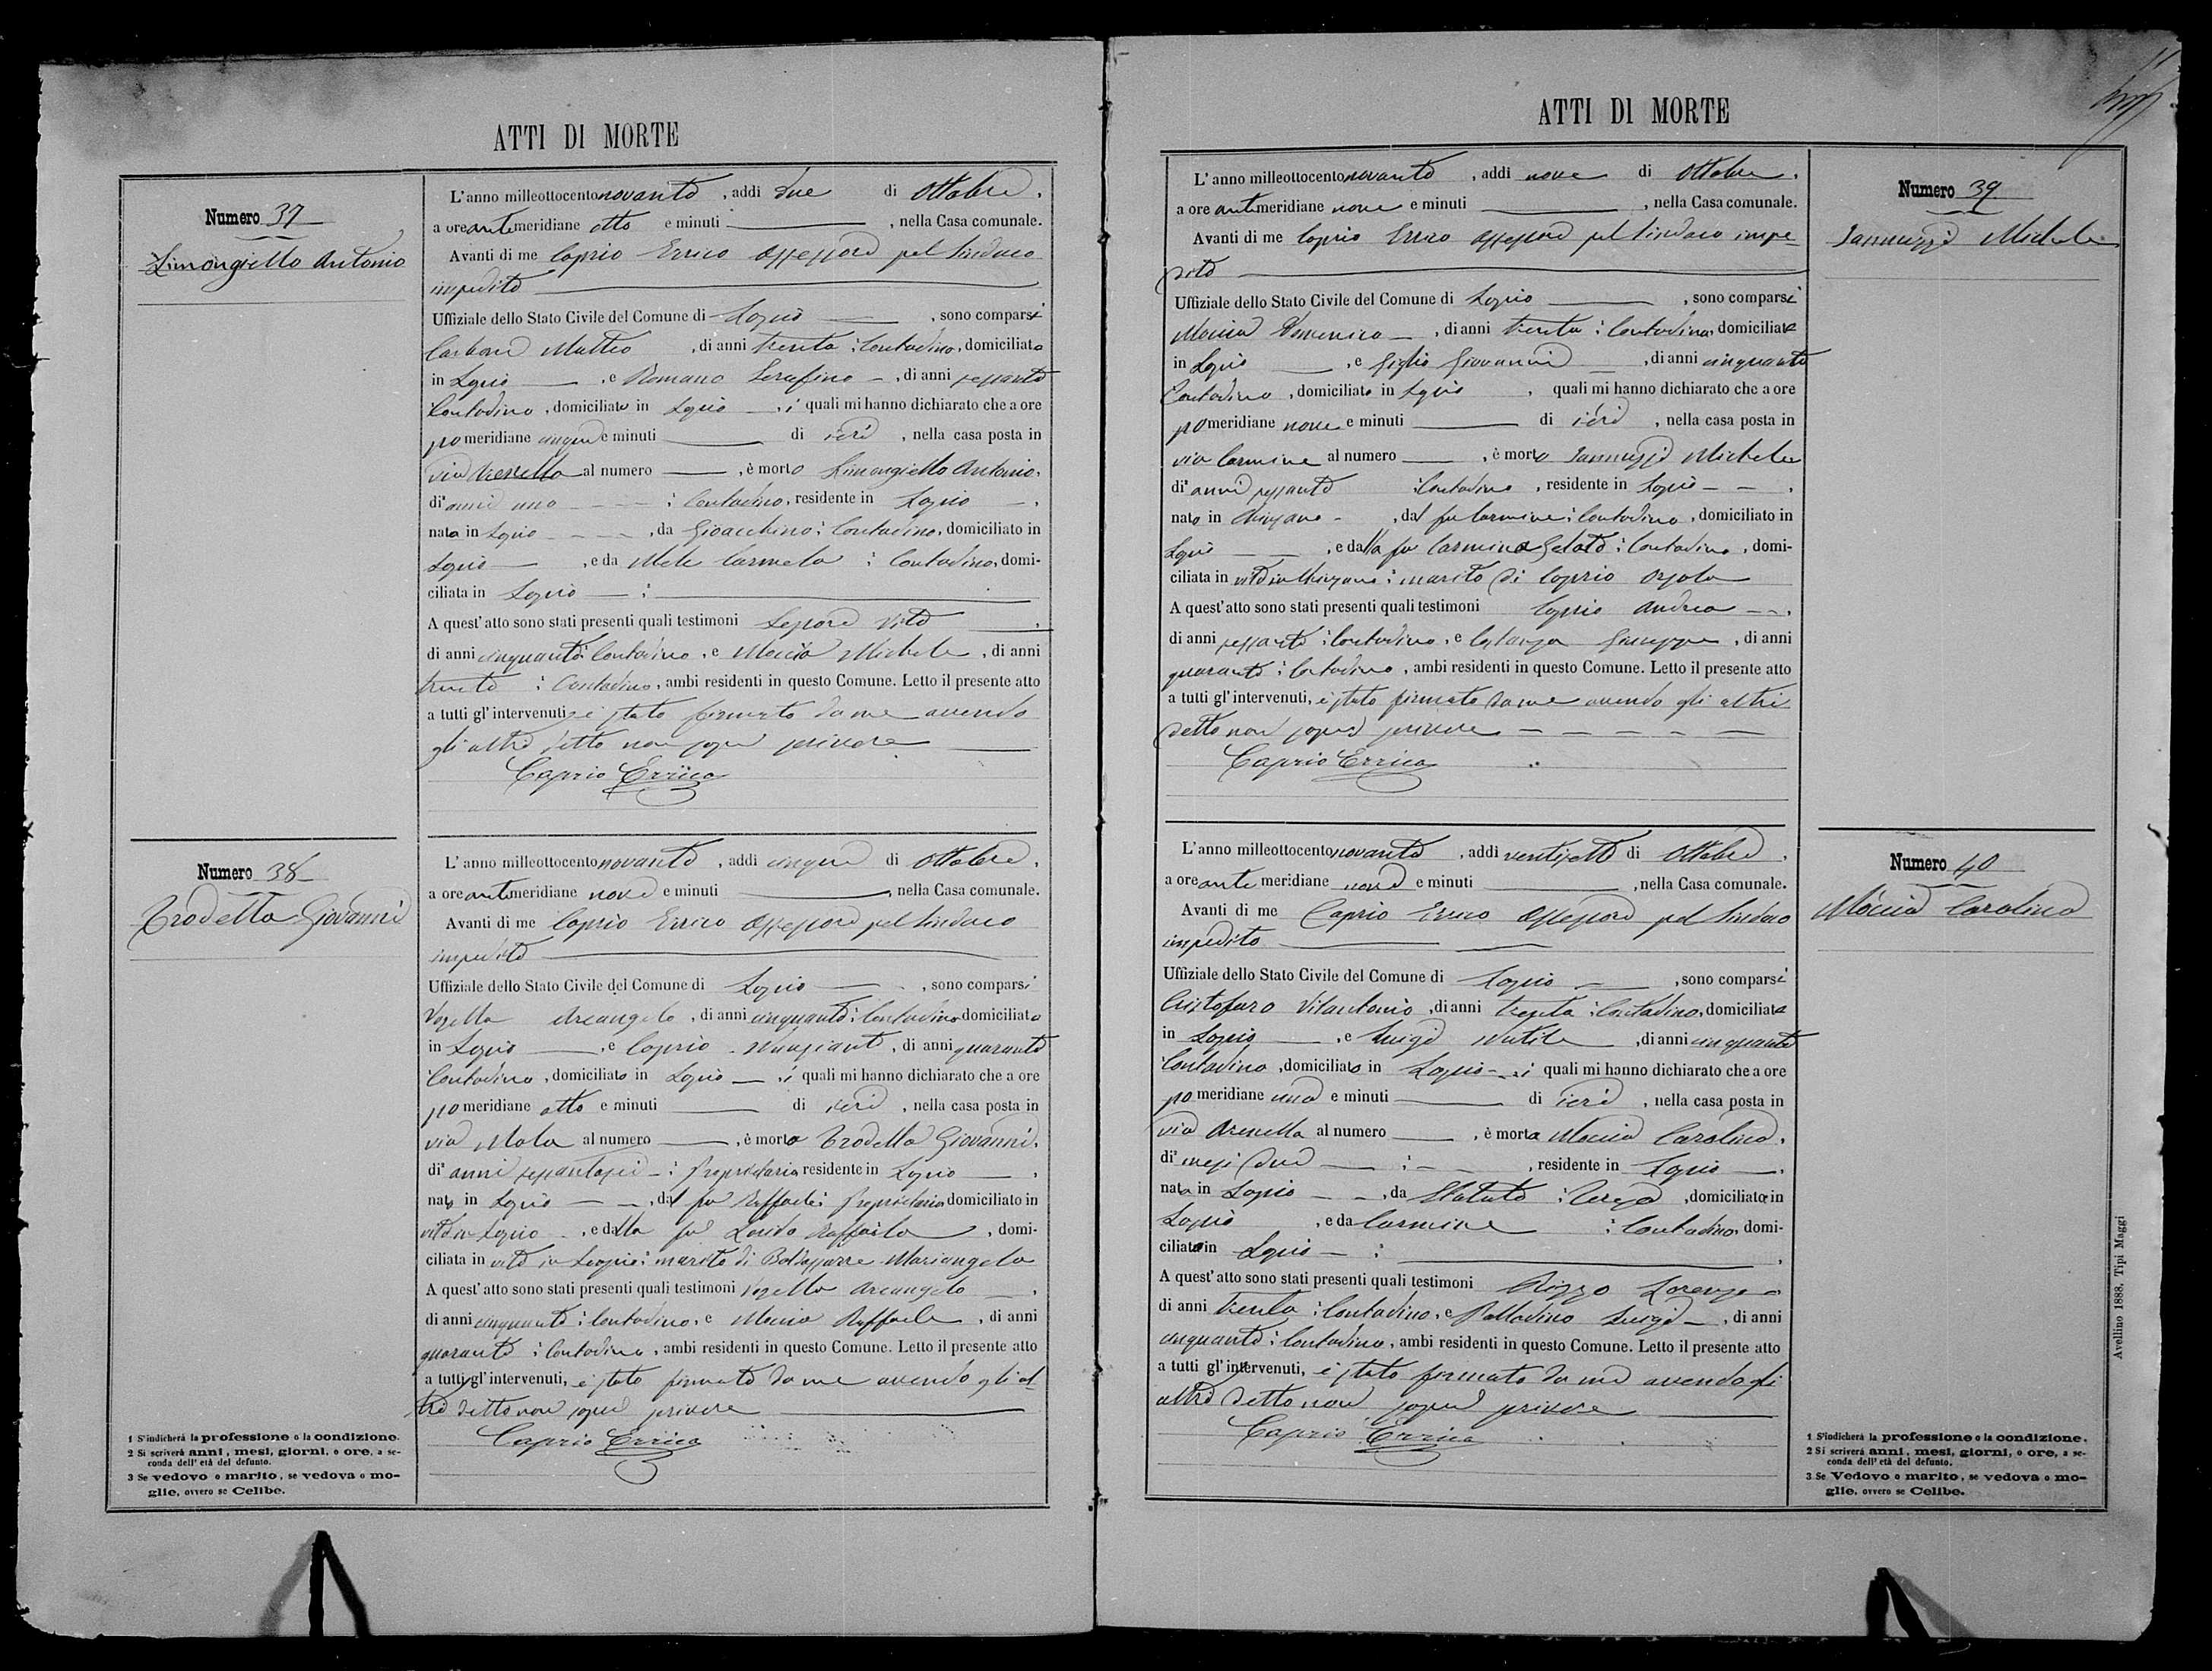 ATTI DI MORTE
Numero 37
Limongiello Antonio
L'anno milleottocentonovanta, addì due di Ottobre,
a ore antimeridiane otto e minuti, nella Casa comunale.
Avanti di me Caprio Errico Assessore pel Sindaco
impedito
Uffiziale dello Stato Civile del Comune di Sorbo, sono comparsi
Carbone Matteo, di anni trenta, Contadino, domiciliato
in, e Romano Serafino, di anni sessanta
Contadino, domiciliato in, i quali mi hanno dichiarato che a ore
pomeridiane cinque e minuti di ieri, nella casa posta in
via Arenella al numero, è morto Limongiello Antonio,
di anni uno, Contadino, residente in,
nato in, da Gioacchino, Contadino, domiciliato in
, e da Mele Carmela, Contadina, domi-
ciliata in
A quest'atto sono stati presenti quali testimoni Lepore Vito,
di anni cinquanta, Contadino, e Moccia Michele, di anni
trenta, Contadino, ambi residenti in questo Comune. Letto il presente atto
a tutti gl'intervenuti, è stato firmato da me avendo
gli altri detto non saper scrivere
Caprio Errico
Numero 38
Trodella Giovanni
L'anno milleottocentonovanta, addì cinque di Ottobre,
a ore antimeridiane nove e minuti, nella Casa comunale.
Avanti di me Caprio Errico Assessore pel Sindaco
impedito
Uffiziale dello Stato Civile del Comune di, sono comparsi
Vozella Arcangelo, di anni cinquanta, Contadino domiciliato
in, e Caprio Nunziante, di anni quaranta
Contadino, domiciliato in, i quali mi hanno dichiarato che a ore
pomeridiane otto e minuti di ieri, nella casa posta in
via Mola al numero, è morto Trodella Giovanni,
di anni sessantasei, proprietario residente in,
nato in, dal fu Raffaele, proprietario domiciliato in
vita in, e dalla fu Raffaela, domi-
ciliata in vita in, marito di Baldassarre Mariangela
A quest'atto sono stati presenti quali testimoni Vozella Arcangelo,
di anni cinquanta, Contadino, e Moccia Raffaele, di anni
quaranta, Contadino, ambi residenti in questo Comune. Letto il presente atto
a tutti gl'intervenuti, è stato firmato da me avendo gli al-
tri detto non saper scrivere
Caprio Errico
1 S'indicherà la professione o la condizione.
2 Si scriverà anni, mesi, giorni, o ore, a se-
conda dell'età del defunto.
3 Se vedovo o marito, se vedova o mo-
glie, ovvero se Celibe.
ATTI DI MORTE
Numero 39
Iannuzzi Michele
L'anno milleottocentonovanta, addì nove di Ottobre,
a ore antimeridiane nove e minuti, nella Casa comunale.
Avanti di me Caprio Errico Assessore pel Sindaco impe-
dito
Uffiziale dello Stato Civile del Comune di, sono comparsi
Moccia Domenico, di anni trenta, Contadino, domiciliato
in, e Giglio Giovanni, di anni cinquanta
Contadino, domiciliato in, quali mi hanno dichiarato che a ore
pomeridiane nove e minuti di ieri, nella casa posta in
via Carmine al numero, è morto Iannuzzi Michele
di anni sessanta, Contadino, residente in,
nato in, dal fu Carmine, Contadino, domiciliato in
, e dalla fu Carmina, Contadina, domi-
ciliata in vita in, marito di Caprio Orsola
A quest'atto sono stati presenti quali testimoni Caprio Andrea,
di anni sessanta, Contadino, e Costanza Giuseppe, di anni
quaranta, Contadino, ambi residenti in questo Comune. Letto il presente atto
a tutti gl'intervenuti, è stato firmato da me avendo gli altri
detto non saper scrivere
Caprio Errico
Numero 40
Moccia Carolina
L'anno milleottocentonovanta, addì ventisette di Ottobre,
a ore antimeridiane nove e minuti, nella Casa comunale.
Avanti di me Caprio Errico Assessore pel Sindaco
impedito
Uffiziale dello Stato Civile del Comune di, sono comparsi
Cristofaro Vitantonio, di anni trenta, Contadino, domiciliato
in, e Luigi, di anni cinquanta
Contadino, domiciliato in, i quali mi hanno dichiarato che a ore
pomeridiane una e minuti di ieri, nella casa posta in
via Arenella al numero, è morta Moccia Carolina,
di mesi due, residente in,
nata in, da, domiciliato in
, e da Carmine, Contadina, domi-
ciliata in
A quest'atto sono stati presenti quali testimoni Rizzo Lorenzo
di anni trenta, Contadino, e Palladino Luigi, di anni
cinquanta, Contadino, ambi residenti in questo Comune. Letto il presente atto
a tutti gl'intervenuti, è stato firmato da me avendo gli
altri detto non saper scrivere
Caprio Errico
1 S'indicherà la professione o la condizione.
2 Si scriverà anni, mesi, giorni, o ore, a se-
conda dell'età del defunto.
3 Se Vedovo o marito, se vedova o mo-
glie, ovvero se Celibe.
Avellino 1888, Tipi Maggi